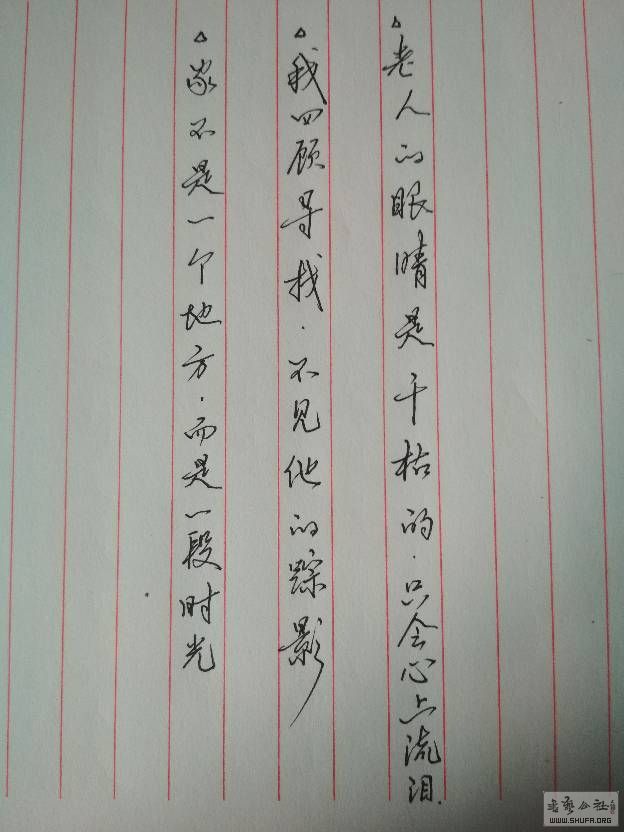 △老人的眼睛是干枯的.只会心上流泪.
△我四顾寻找.不见他的踪影
△家不是一个地方.而是一段时光
书艺公社
WWW.SHUFA.ORG